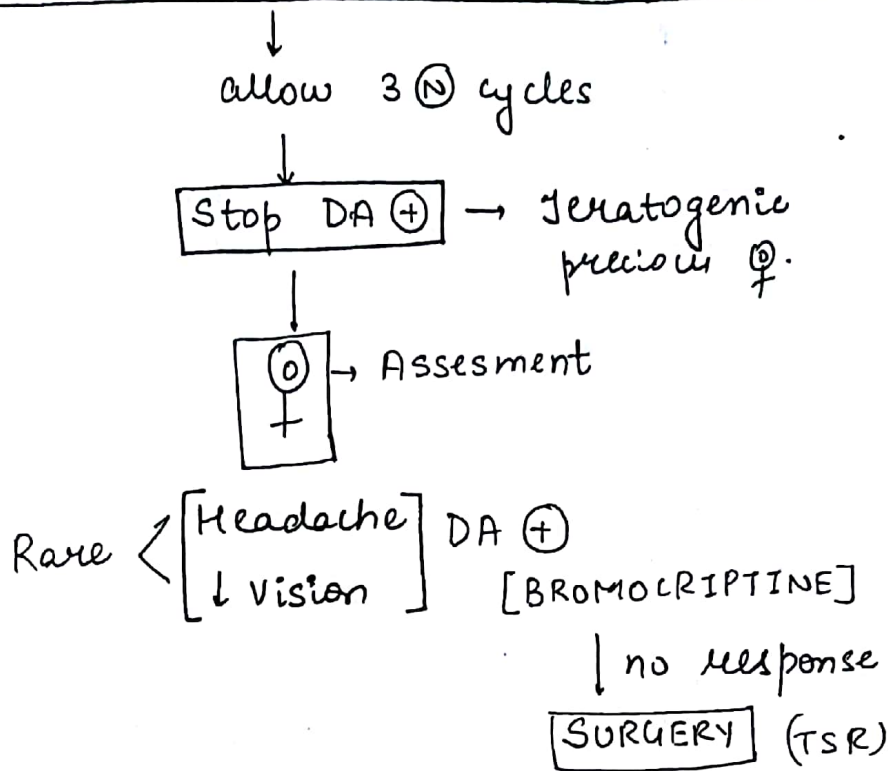 ↓
allow 3 Ⓝ cycles
↓
Stop DA ⊕ → Teratogenic
precious ♀.
↓
♀ → Assesment
Rare < [Headache
↓ Vision] DA ⊕
[BROMOCRIPTINE]
↓ no response
SURGERY (TSR)